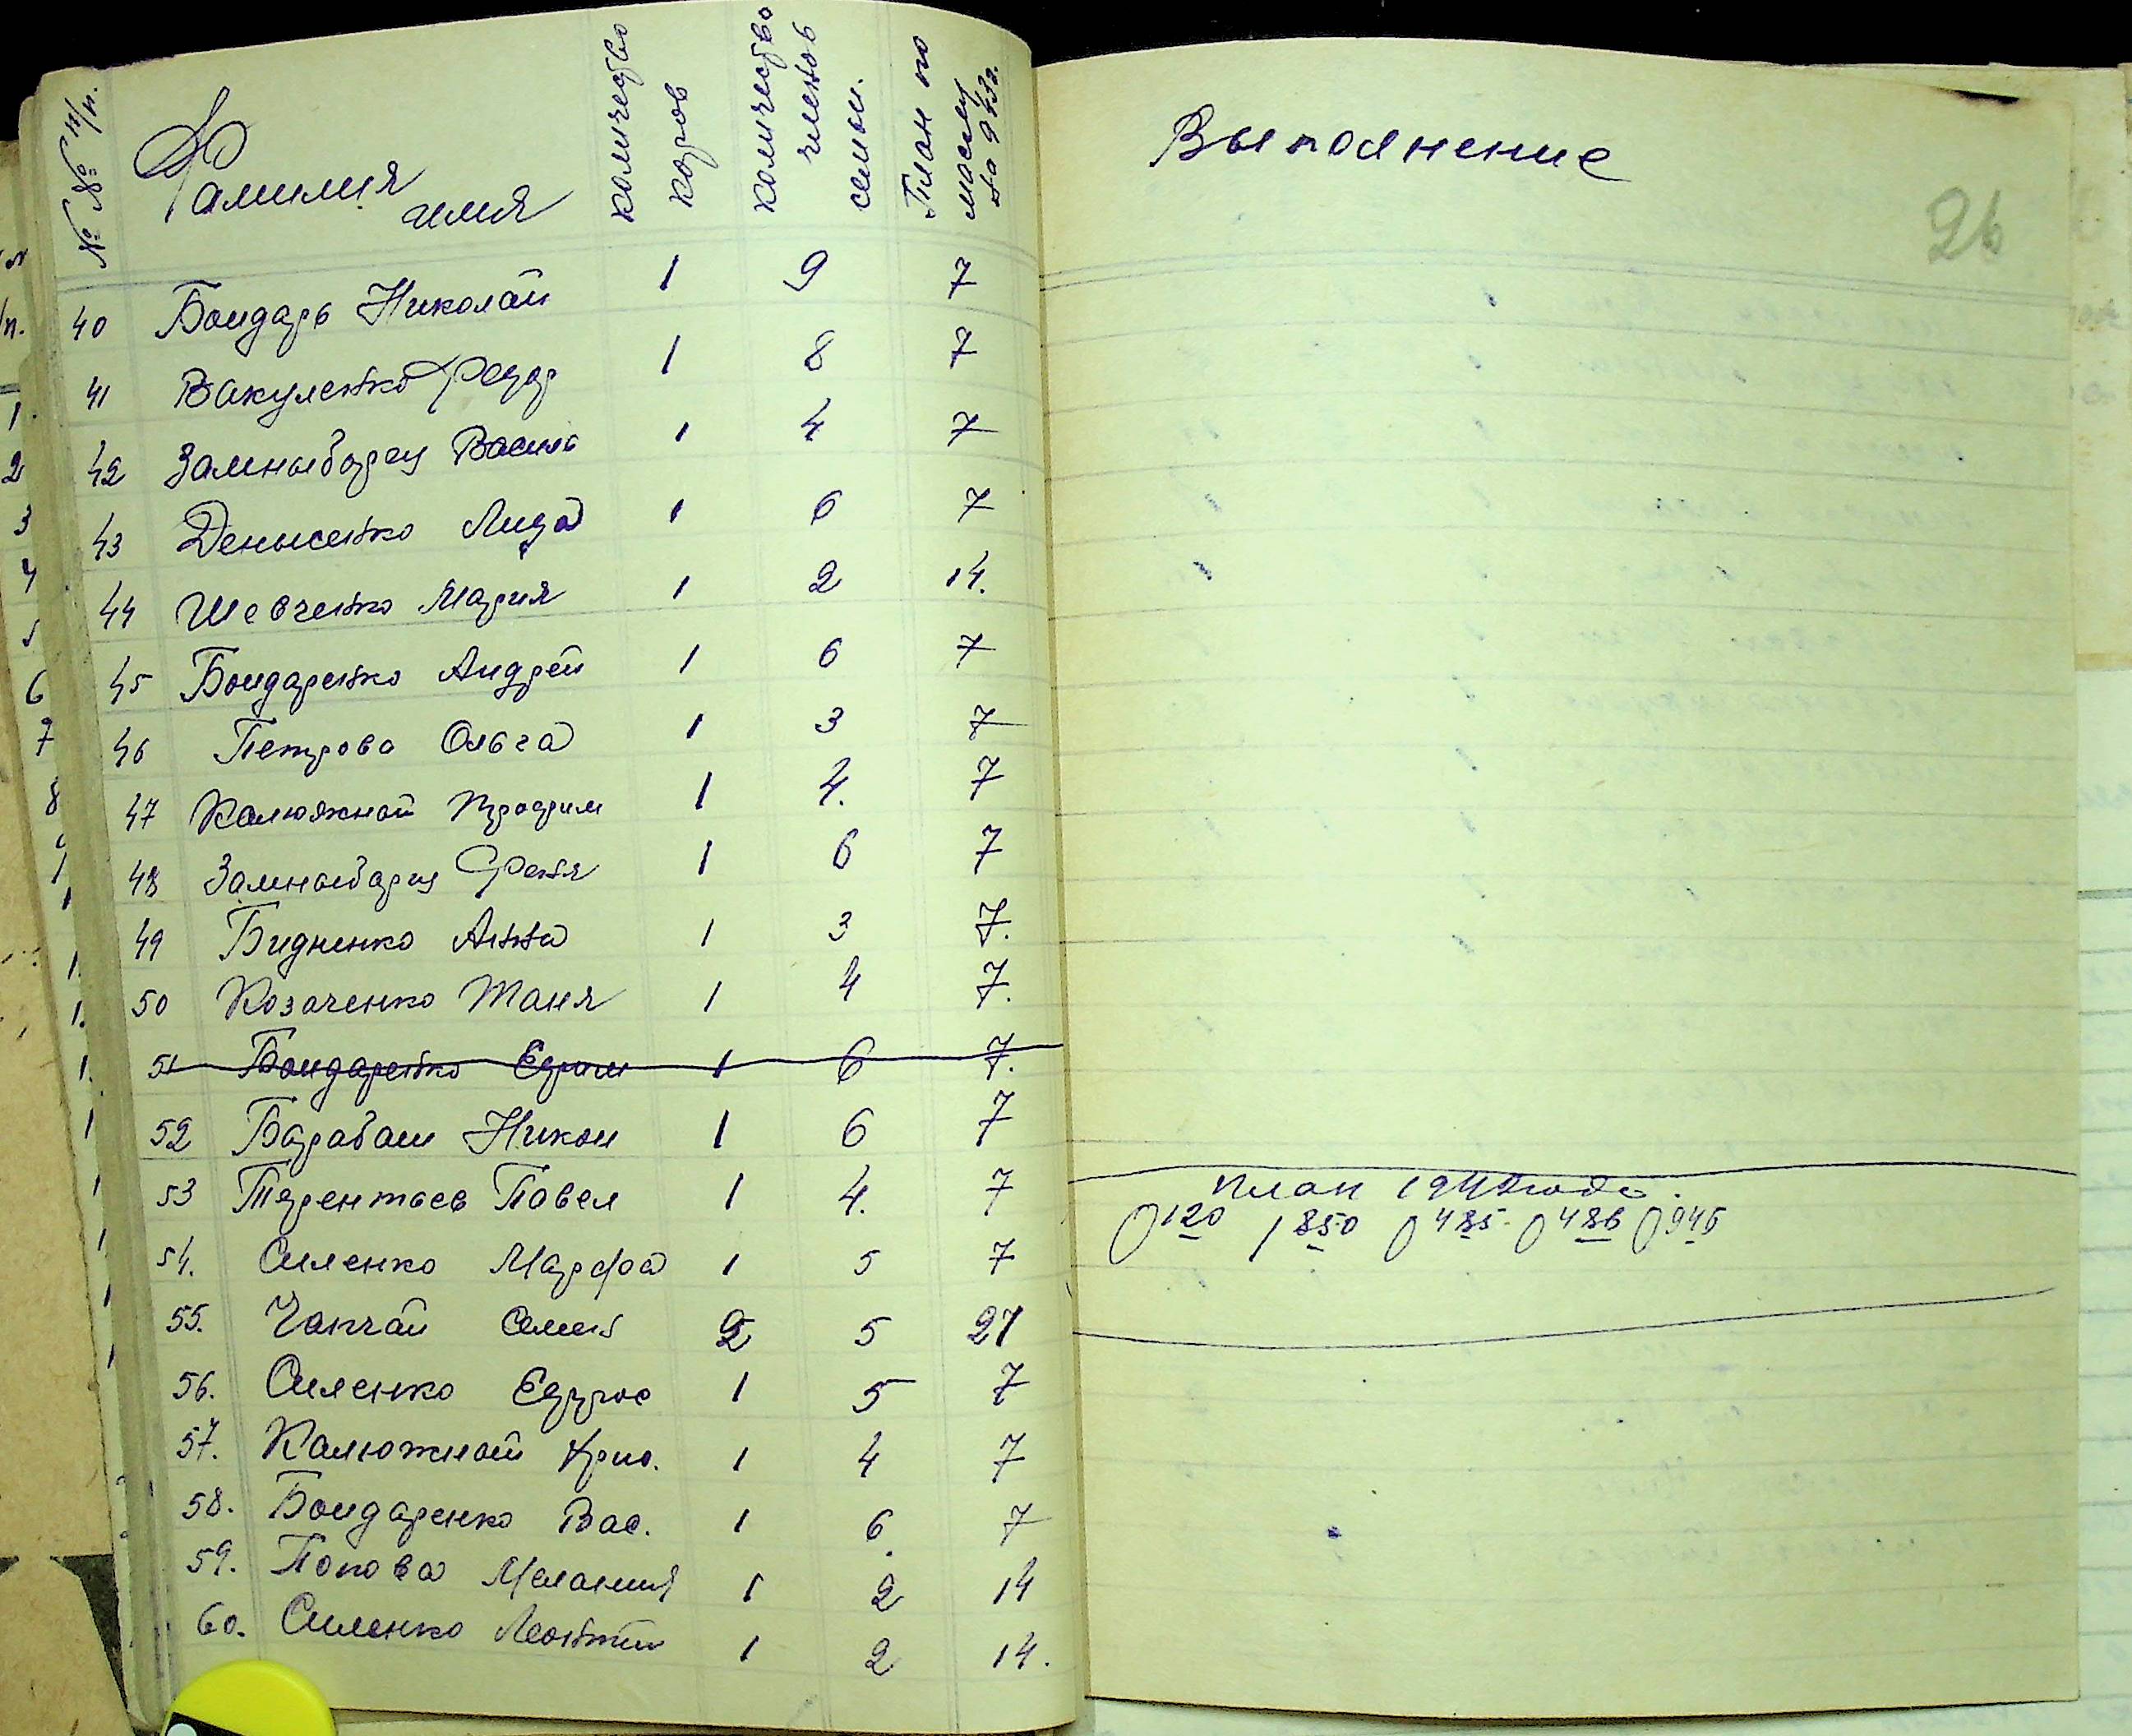 № № п/п. Фамилия имя количество коров количество членов семьи. План по маслу на 1943г.
40 Бондарь Николай 1 9 7
41 Вакуленко Федор 1 8 7
42 Замныборщ Василь 1 4 7
43 Денысенко Лида 1 6 7
44 Шевченко Мария 1 2 14.
45 Бондаренко Андрей 1 6 7
46 Петрова Ольга 1 3 7
47 Калюжной Трофим 1 4. 7
48 Замныборщ Феня 1 6 7
49 Бидненко Анна 1 3 7.
50 Козаченко Таня 1 4 7.
51 Бондаренко Ефим 1 6 7.
52 Барабаш Никон 1 6 7
53 Терентьев Павел 1 4. 7
54. Силенко Марфа 1 5 7
55. Чапчай Семен 2 5 27
56. Силенко Ефрос 1 5 7
57. Калюжной 1 4 7
58. Бондаренко Вас. 1 6. 7
59. Попова Мелания 1 2 14
60. Силенко Леонтий 1 2 14.
Выполнение
26
План 1944 года.
0120 1850 0485 0486 0945